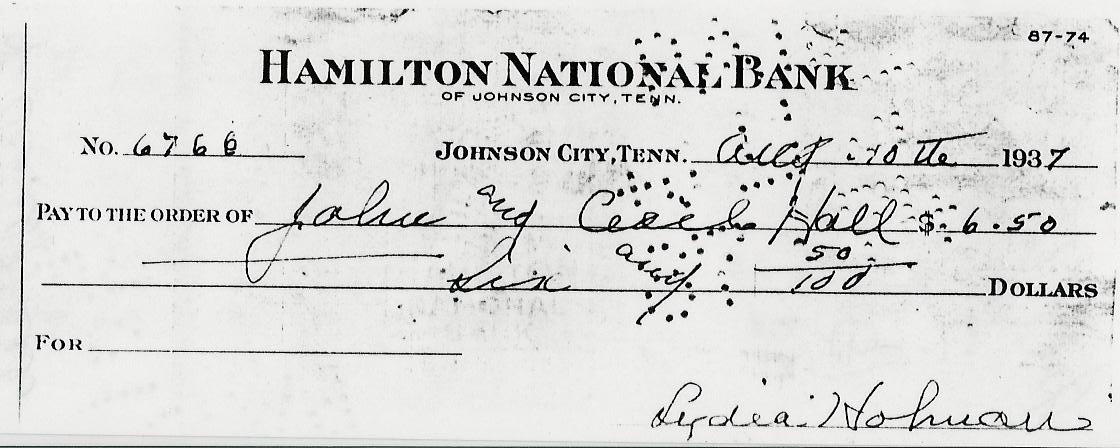 87-74
HAMILTON NATIONAL BANK
OF JOHNSON CITY, TENN.
No. 6768 JOHNSON CITY, TENN. 10 the 1937
PAY TO THE ORDER OF John and Hall $ 6.50
Six and 50/100 DOLLARS
FOR
Lydia Holman